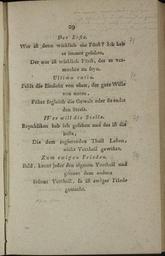 29
Der Erste.
Wer ist denn wirklich ein Fürst? Ich hab
es immer gesehen,
Der nur ist wirklich Fürst, der es ver-
mochte zu seyn.
Ultima ratio.
Fehlt die Einsicht von oben, der gute Wille
von unten,
Führt sogleich die Gewalt oder sie endet
den Streit.
Wer will die Stelle.
Republiken hab ich gesehen und das ist die
beste,
Die dem regierenden Theil Lasten,
nicht Vortheil gewährt.
Zum ewigen Frieden.
Bald, kennt jeder den eigenen Vortheil und
gönnet dem andern
Seinen Vortheil, so ist ewiger Friede
gemacht.